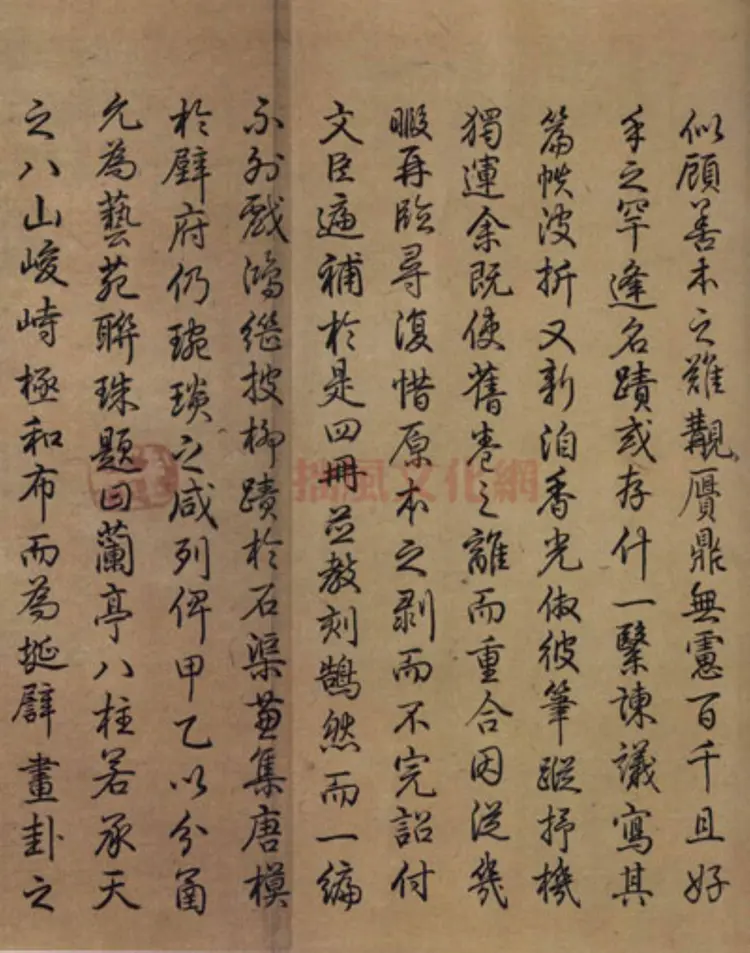 似顧善本之難觀贋鼎無慮百千且好
手之罕逢名蹟或存什一繄諫議寫其
篇帙波折又新洎香光倣彼筆蹤抒機
獨運余既使舊卷之離而重合因從幾
暇再臨尋復惜原本之剥而不完詔付
文臣遍補於是四冊並教刻鵠然而一編
不列戲鴻繼披柳蹟於石渠兼集唐模
於壁府仍琬琰之咸列俾甲乙以分函
允為藝苑聯珠題曰蘭亭八柱若承天
之八山峻峙極和布而為埏譬畫卦之
揣風文化網